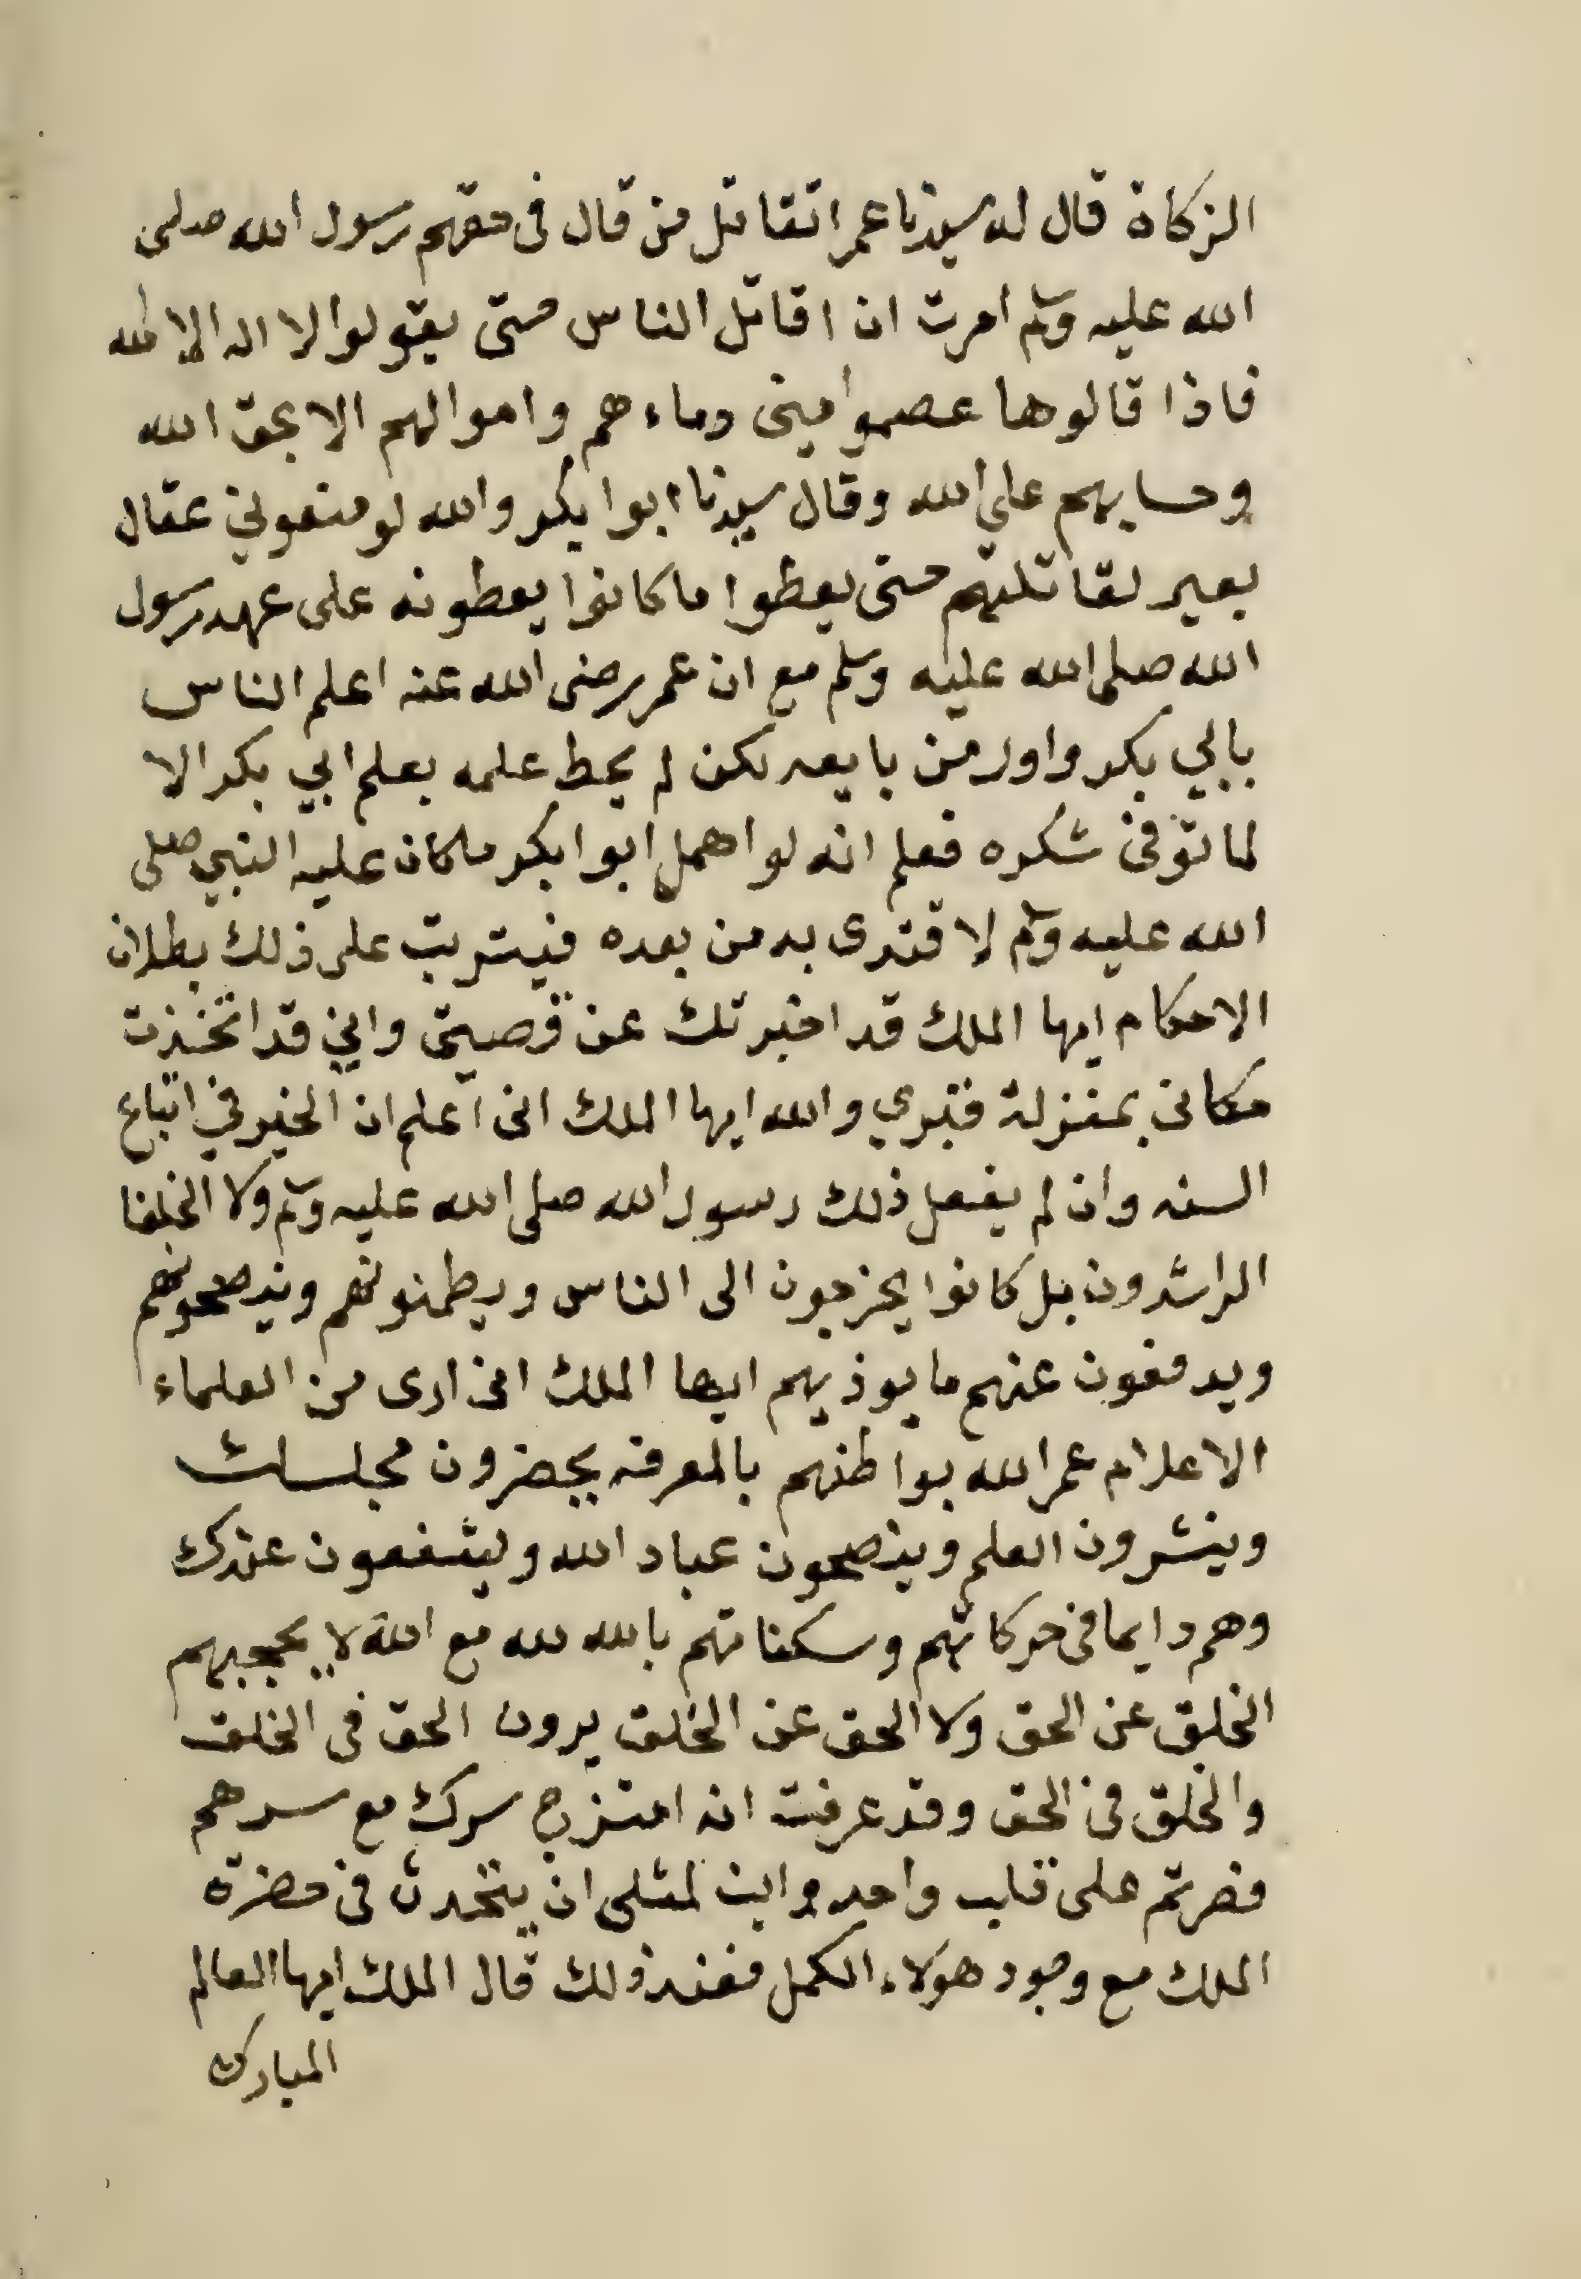 الزكاة قال له سيدنا عمر اتقاتل من قال في حقهم رسول الله صلى
الله عليه وسلم امرت ان اقاتل الناس حتى يقولوا لا اله الا الله
فاذا قالوها عصموا مني دماءهم واموالهم الا بحق الله
وحسابهم علي الله وقال سيدنا ابوا بكر والله لو منعوني عقال
بعير لقاتلتهم حتى يعطوا ما كانوا يعطونه على عهد رسول
الله صلى الله عليه وسلم مع ان عمر رضى الله عنه اعلم الناس
بابي بكر واول من بايعه لكن لم يحط علمه بعلم ابي بكر الا
لما توفى شكره فعلم انه لو اهمل ابوا بكر ما كان عليه النبي صلى
الله عليه وسلم لاقتدى به من بعده فيترتب على ذلك بطلان
الاحكام ايها الملك قد اخبرتك عن قصيتى واني قد اتخذت
مكانى بمنزلة قبري والله ايها الملك انى اعلم ان الخير في اتباع
السنه وان لم يفعل ذلك رسول الله صلى الله عليه وسلم ولا الخلفا
الراشدون بل كانوا يخرجون الى الناس ويطمنونهم وينصحونهم
ويدفعون عنهم ما يوذيهم ايها الملك انى ارى من العلماء
الاعلام عمر الله بواطنهم بالمعرفه يحضرون مجلسك
وينشرون العلم وينصحون عباد الله ويشفعون عندك
وهم دايما فى حركاتهم وسكناتهم بالله لله مع الله لا يحجبهم
الخلق عن الحق ولا الحق عن الخلق يرون الحق فى الخلق
والخلق فى الحق وقد عرفت انه امتزج سرك مع سرهم
فصرتم على قلب واحد واين لمثلى ان يتحدث فى حضرة
الملك مع وجود هولاء الكمل فعند ذلك قال الملك ايها العالم
المبارك